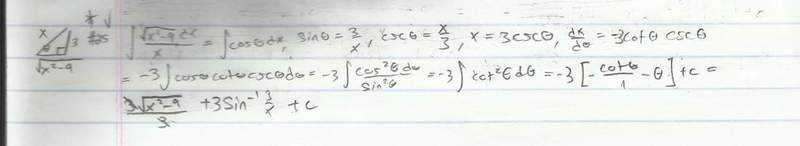 x 3 √x²-9
∫ √x²-9 dx / x = ∫ cosθ dx, sinθ = 3/x, cscθ = x/3, x = 3cscθ, dx/dθ = -3cotθ cscθ
= -3 ∫ cosθ cotθ cscθ dθ = -3 ∫ cos²θ dθ / sin²θ = -3 ∫ cot²θ dθ = -3 [- cotθ/1 - θ] + c =
3√x²-9 / 3 + 3 Sin⁻¹ 3/x + c